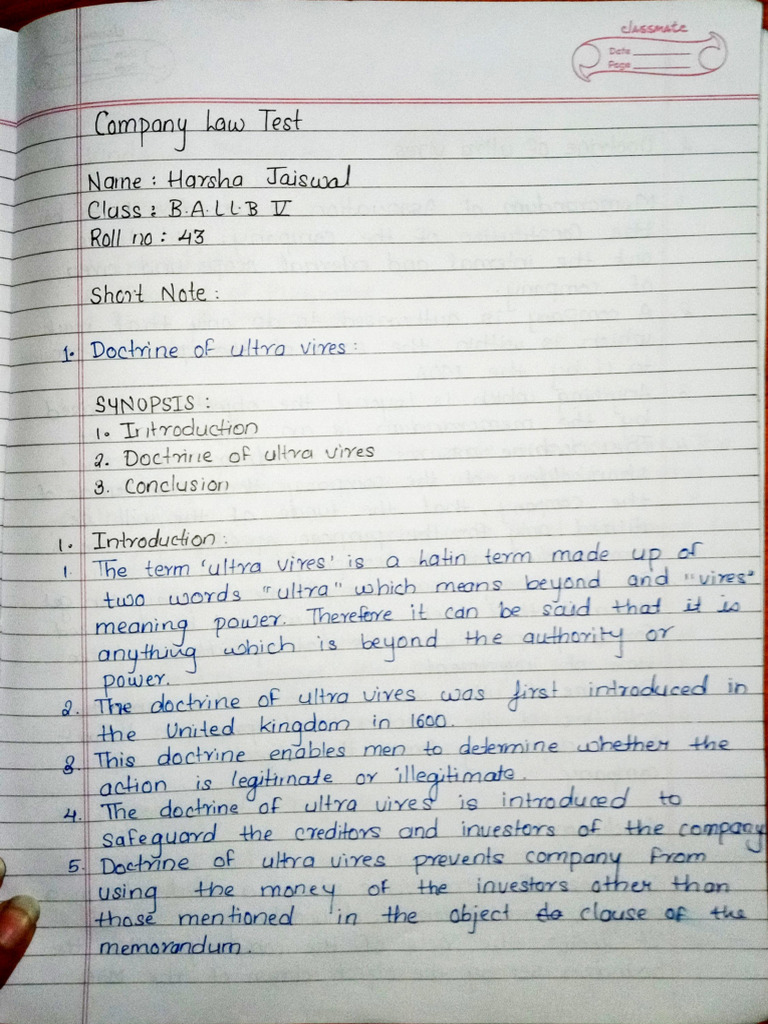 classmate
Date
Page
Company Law Test
Name : Harsha Jaiswal
Class : B.A.LL.B V
Roll no : 43
Short Note :
1. Doctrine of ultra vires :
SYNOPSIS :
1. Introduction
2. Doctrine of ultra vires
3. Conclusion
1. Introduction :
1. The term 'ultra vires' is a Latin term made up of
two words "ultra" which means beyond and "vires"
meaning power. Therefore it can be said that it is
anything which is beyond the authority or
power.
2. The doctrine of ultra vires was first introduced in
the United kingdom in 1600.
3. This doctrine enables men to determine whether the
action is legitimate or illegitimate.
4. The doctrine of ultra vires is introduced to
safeguard the creditors and investors of the company
5. Doctrine of ultra vires prevents company from
using the money of the investors other than
those mentioned in the object clause of the
memorandum.